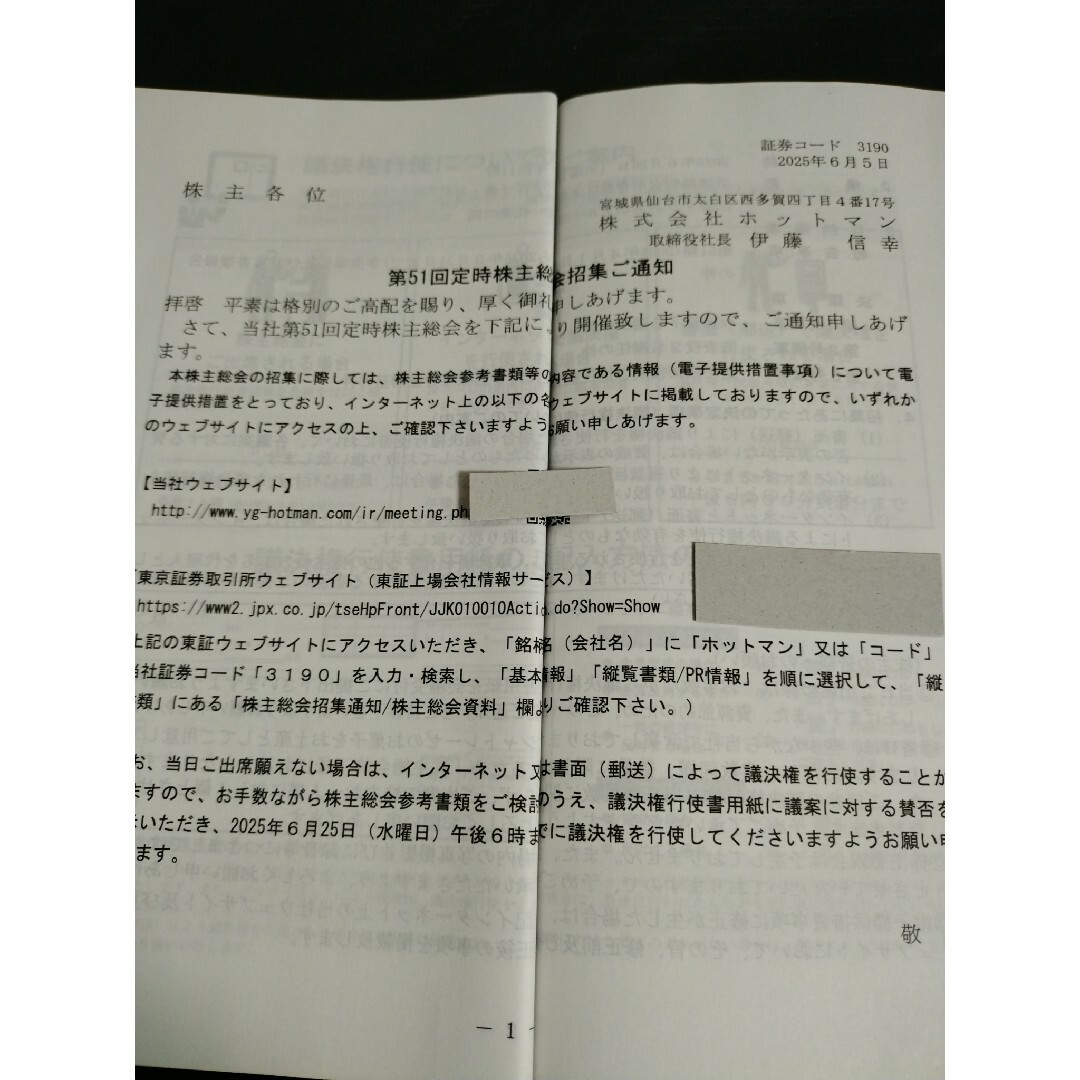 証券コード 3190
2025年6月5日
株主各位
宮城県仙台市太白区西多賀四丁目4番17号
株式会社ホットマン
取締役社長 伊藤 信幸
第51回定時株主総会招集ご通知
拝啓 平素は格別のご高配を賜り、厚く御礼申しあげます。
さて、当社第51回定時株主総会を下記により開催致しますので、ご通知申しあげ
ます。
本株主総会の招集に際しては、株主総会参考書類等の内容である情報（電子提供措置事項）について電
子提供措置をとっており、インターネット上の以下の各ウェブサイトに掲載しておりますので、いずれか
のウェブサイトにアクセスの上、ご確認下さいますようお願い申しあげます。
【当社ウェブサイト】
http://www.yg-hotman.com/ir/meeting.ph
東京証券取引所ウェブサイト（東証上場会社情報サービス）】
https://www2.jpx.co.jp/tseHpFront/JJK010010Action.do?Show=Show
上記の東証ウェブサイトにアクセスいただき、「銘柄名（会社名）」に「ホットマン」又は「コード」
当社証券コード「3190」を入力・検索し、「基本情報」「縦覧書類/PR情報」を順に選択して、「縦
類」にある「株主総会招集通知/株主総会資料」欄よりご確認下さい。）
お、当日ご出席願えない場合は、インターネット又は書面（郵送）によって議決権を行使することが
ますので、お手数ながら株主総会参考書類をご検討のうえ、議決権行使書用紙に議案に対する賛否を
いただき、2025年6月25日（水曜日）午後6時までに議決権を行使してくださいますようお願い申
ます。
敬
－ 1